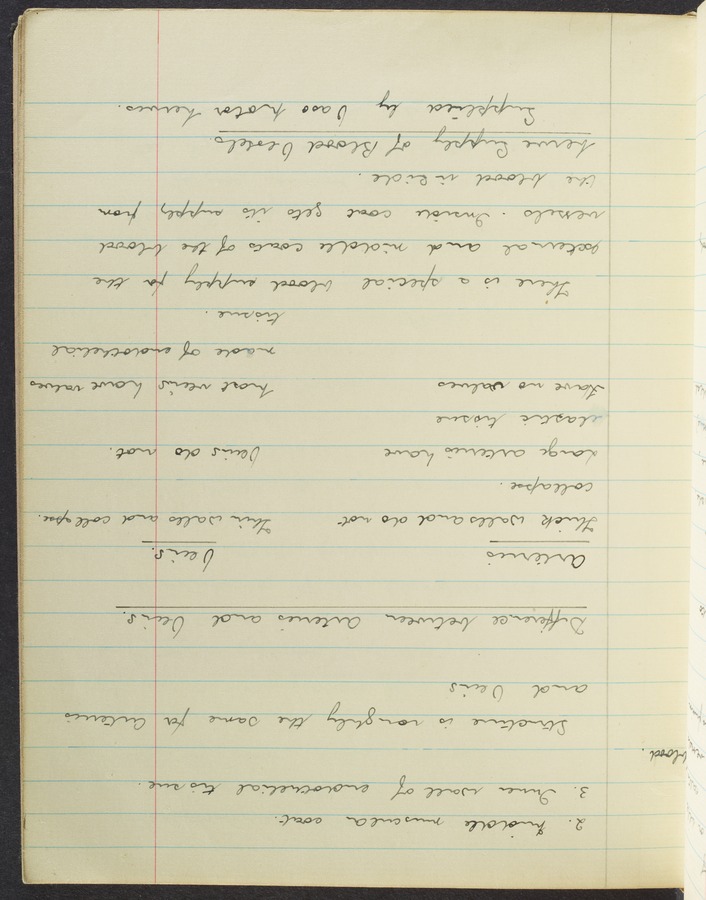 2. Middle muscular coat.
3. Inner wall of endothelial tissue.
blood.
Structure is roughly the same for Arteries
and Veins
Difference between Arteries and Veins.
Arteries Veins.
Thick walls and do not Thin walls and collapse.
collapse.
Large arteries have Veins do not.
elastic tissue
Have no valves Most veins have valves
made of endothelial
tissue.
There is a special blood supply for the
external and middle coats of the blood
vessels. Inside coat gets its supply from
the blood inside.
Nerve Supply of Blood Vessels.
Supplied by Vaso Motor Nerves.